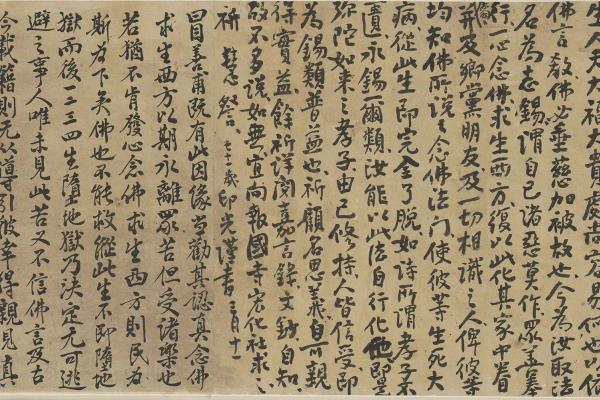 生人天大福大貴處尚為易何也以信
佛言教佛必垂慈加被故也今為汝取法
名為志錫謂自己諸惡莫作眾善奉
行一心念佛求生西方復以此化其家中眷
屬並及鄉黨朋友及一切相識之人俾彼等
均知佛所說之念佛法門使彼等生死大
病從此生即完全了脫如詩所謂孝子不
匱永錫爾類汝能以此法自行化他即是
弥陀如来之孝子由己修持人皆信受即
為錫類普益也祈顧名思義自可親
得實益餘祈詳閱嘉言錄文鈔自知
故不多說如無宜向報國寺弘化社求之
祈慧詧 七十二歲印光謹書 三月十一
目善甫既有此因緣當勸其認真念佛
求生西方以期永離眾苦但受諸樂也
若猶不肯發心念佛求生西方則民
斯為下矣佛也不能救從此生不即墮地
獄而後一二三四生墮地獄乃決定无可逃
避之事人唯未見此苦又不信佛言及古
今載籍則无以導引彼幸得親見真